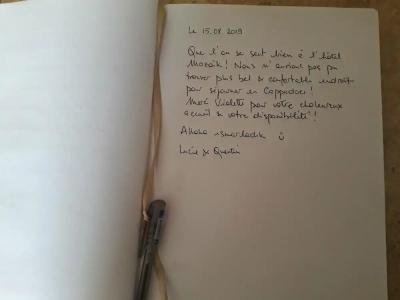 Le 15.08.2019
Que l'on se sent bien à l'hôtel
Mozaik! Nous n'aurions pas pu
trouver plus bel & confortable endroit
pour séjourner en Cappadoce!
Merci Violette pour votre chaleureux
accueil & votre disponibilité!
Allaha ısmarladık
Lucie & Quentin